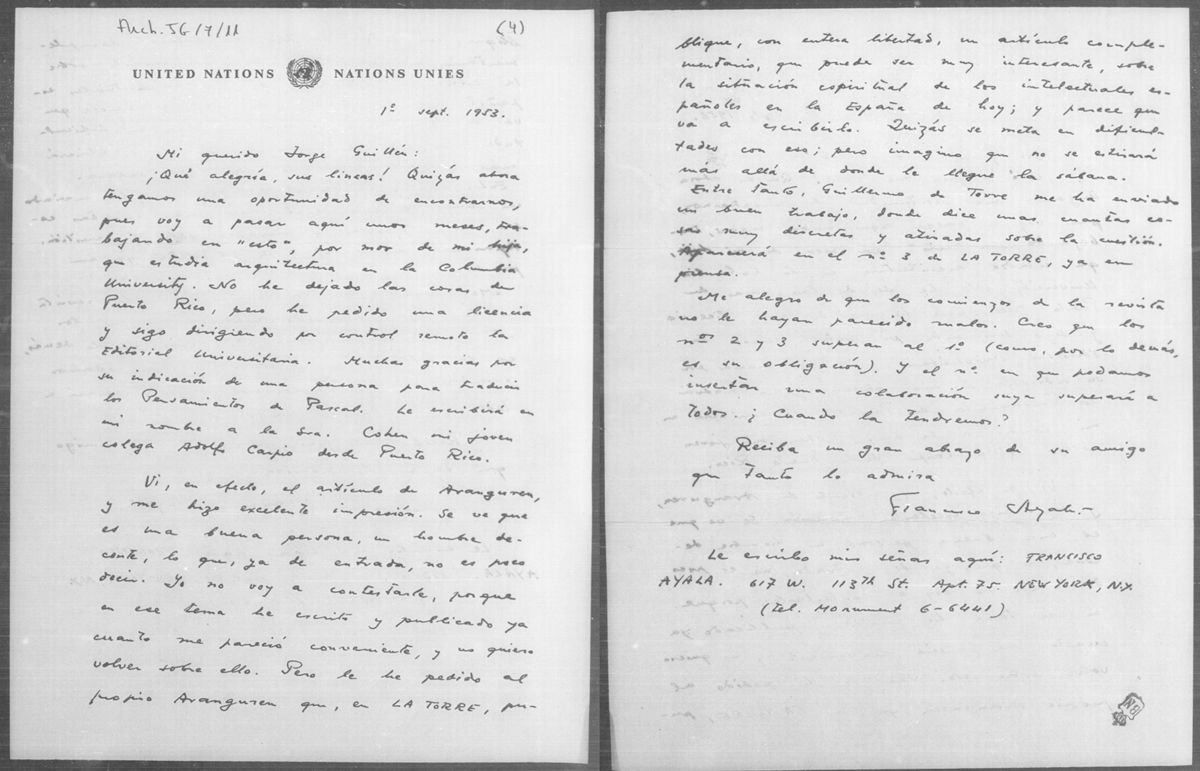 Arch. JG/7/11
(4)
UNITED NATIONS NATIONS UNIES
1º sept. 1953.
Mi querido Jorge Guillén:
¡Qué alegría, sus líneas! Quizás ahora
tengamos una oportunidad de encontrarnos,
pues voy a pasar aquí unos meses, tra-
bajando en "esto", por mor de mi hija,
que estudia arquitectura en la Columbia
University. No he dejado las cosas de
Puerto Rico, pero he pedido una licencia
y sigo dirigiendo por control remoto la
Editorial Universitaria. Muchas gracias por
su indicación de una persona para traducir
los Pensamientos de Pascal. Le escribirá en
mi nombre a la Sra. Cohen mi joven
colega Adolfo Carpio desde Puerto Rico.
Vi, en efecto, el artículo de Aranguren,
y me hizo excelente impresión. Se ve que
es una buena persona, un hombre de-
cente, lo que, ya de entrada, no es poco
decir. Yo no voy a contestarle, porque
en ese tema he escrito y publicado ya
cuanto me pareció conveniente, y no quiero
volver sobre ello. Pero le he pedido al
propio Aranguren que, en LA TORRE, pu-
blique, con entera libertad, un artículo comple-
mentario, que puede ser muy interesante, sobre
la situación espiritual de los intelectuales es-
pañoles en la España de hoy; y parece que
va a escribirlo. Quizás se meta en dificul-
tades con eso; pero imagino que no se estirará
más allá de donde le llegue la sábana.
Entre tanto, Guillermo de Torre me ha enviado
un buen trabajo, donde dice unas cuantas co-
sas muy discretas y atinadas sobre la cuestión.
Aparecerá en el nº 3 de LA TORRE, ya en
prensa.
Me alegro de que los comienzos de la revista
no le hayan parecido malos. Creo que los
nos 2 y 3 superan al 1º (como, por lo demás,
es su obligación). Y el nº en que podamos
insertar una colaboración suya superará a
todos. ¿Cuándo la tendremos?
Reciba un gran abrazo de su amigo
que tanto lo admira
Francisco Ayala
Le escribo mis señas aquí: FRANCISCO
AYALA. 617 W. 113th St. Apt. 75. NEW YORK, N.Y.
(tel. Monument 6-6441)